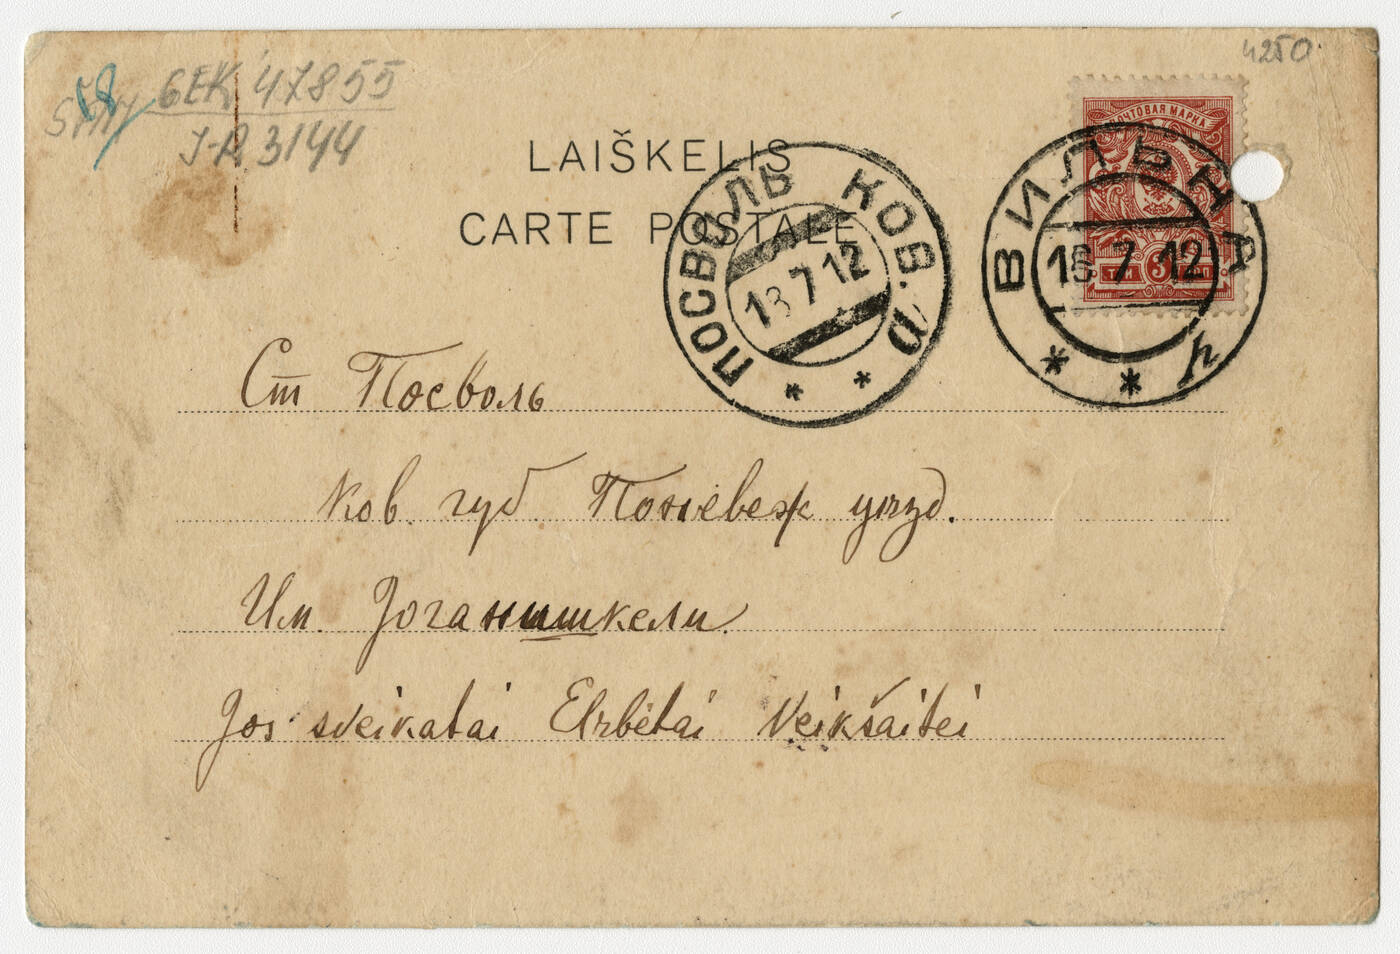 58
GEK 47855
J-R 3144
4250
LAIŠKELIS
CARTE POSTALE
ПОСВОЛЬ КОВ.
18 7 12
ПОЧТОВАЯ МАРКА
3
ВИЛЬНА
16 7 12
Ст Посволь
Ков. губ Поневеж уѣзд.
Им. Іоганишкели.
Jos sveikatai Elzbėtai Veikšaitei